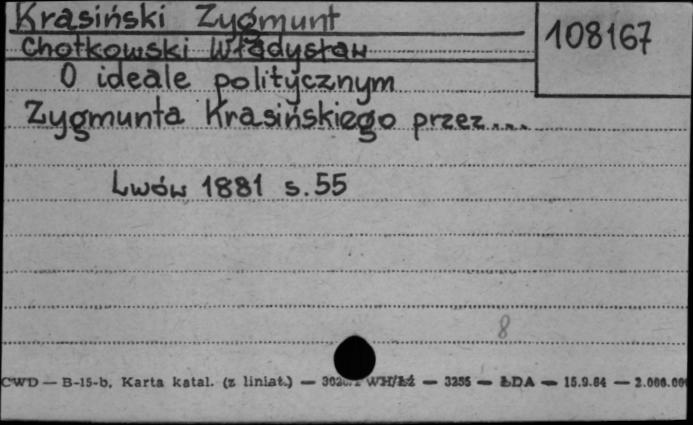 Krasiński Zygmunt
108167
Chotkowski Władysław
O ideale politycznym
Zygmunta Krasińskiego przez...
Lwów 1881 s. 55
8
CWD — B-15-b, Karta katal. (z liniat.) — WH/Łź — 3255 — ŁDA — 15.9.64 — 2.000.000